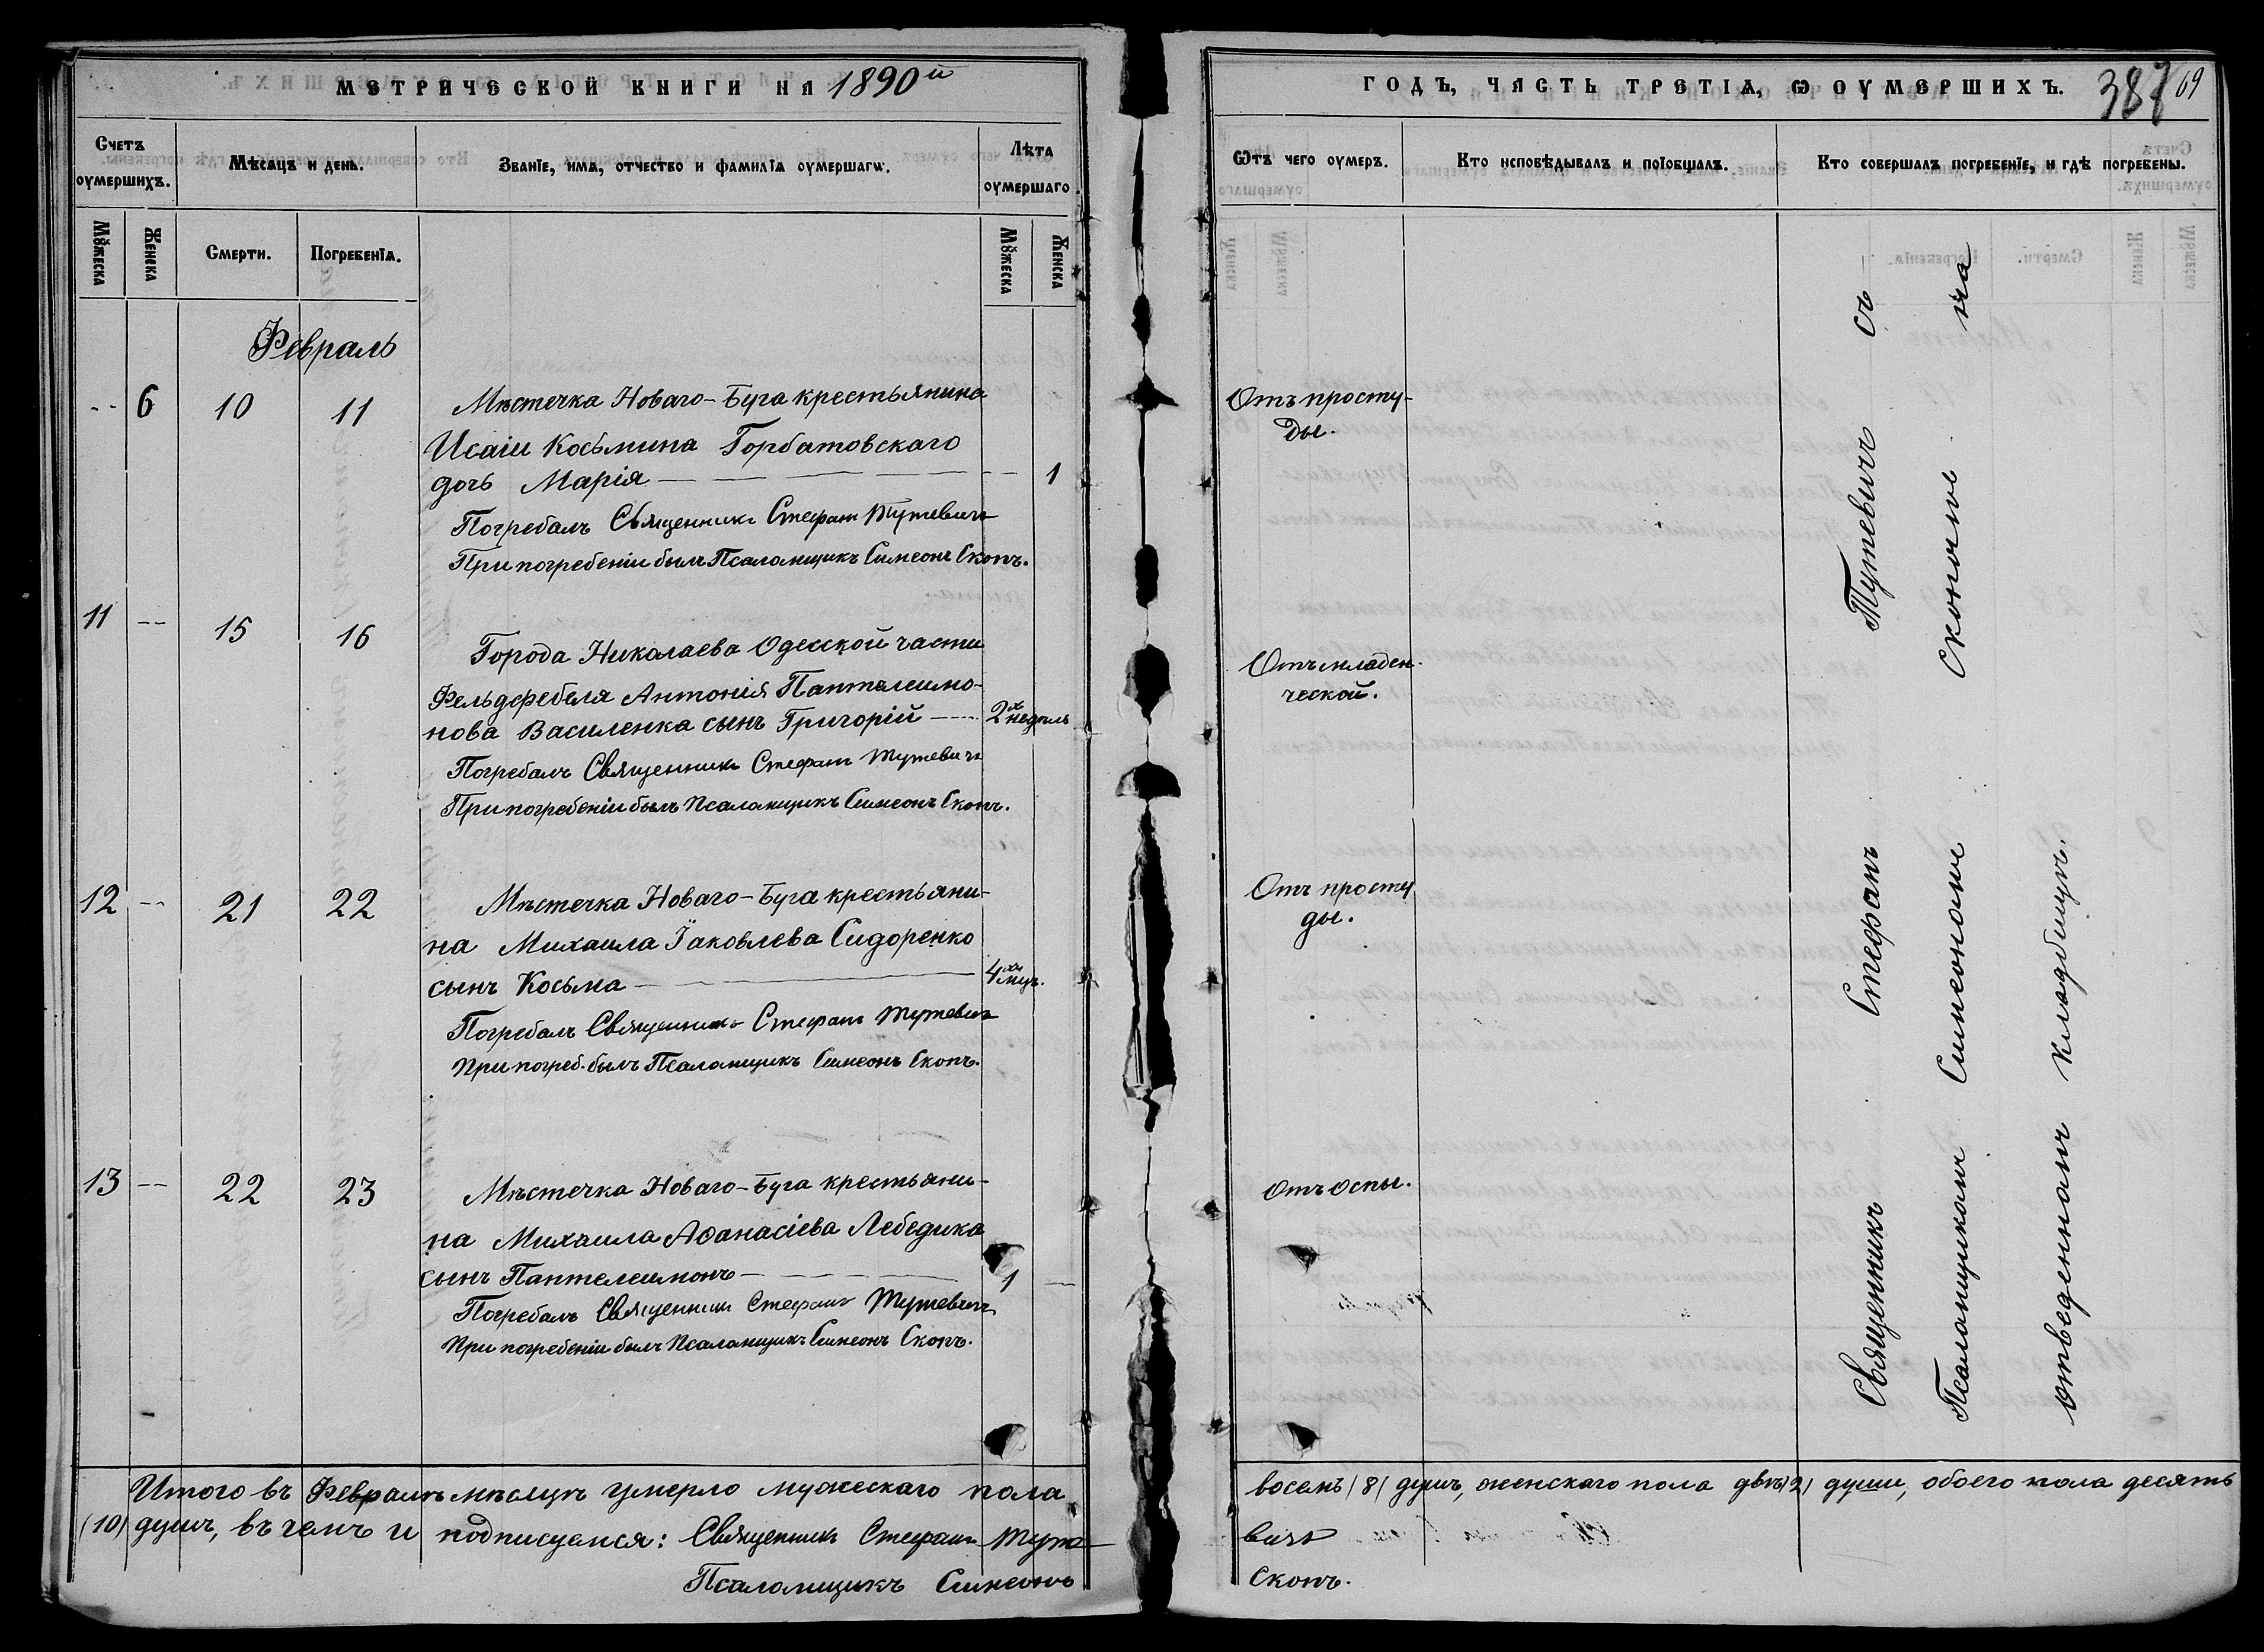 МЕТРИЧЕСКОЙ КНИГИ НА 1890й
Счетъ оумершихъ.
Мѣсяцъ и день.
Званїе, имѧ, отчество и фамилїѧ оумершагѡ.
Лѣта оумершаго.
Мꙋжеска
Женска
Смерти.
Погребенїѧ.
Мꙋжеска
Женска
Февраль
-- 6 10 11
Мѣстечка Новаго-Буга крестьянина
Исаіи Косьмина Горбатовскаго
дочь Марія — 1
Погребалъ Священникъ Стефанъ Тутевичъ
При погребеніи былъ Псаломщикъ Симеонъ Скопъ.
11 -- 15 16
Города Николаева Одесской части
Фельдфебеля Антонія Пантелеимо-
нова Василенка сынъ Григорій — 2х недѣль
Погребалъ Священникъ Стефанъ Тутевичъ
При погребеніи былъ Псаломщикъ Симеонъ Скопъ.
12 -- 21 22
Мѣстечка Новаго-Буга крестьяни-
на Михаила Їаковлева Сидоренко
сынъ Косьма — 4хъ мцъ.
Погребалъ Священникъ Стефанъ Тутевичъ
При погреб. былъ Псаломщикъ Симеонъ Скопъ.
13 -- 22 23
Мѣстечка Новаго-Буга крестьяни-
на Михаила Аѳанасіева Лебедика
сынъ Пантелеимонъ — 1 —
Погребалъ Священникъ Стефанъ Тутевичъ
При погребеніи былъ Псаломщикъ Симеонъ Скопъ.
Итого въ Февралѣ мѣсяцѣ умерло мужескаго пола
(10) душъ, въ чемъ и подписуемся: Священникъ Стефанъ Туте-
Псаломщикъ Симеонъ
ГОДЪ, ЧАСТЬ ТРЕТІѦ, Ѡ ОУМЕРШИХЪ.
387 69
Ѿтъ чего оумеръ.
Кто исповѣдывалъ и пріобщалъ.
Кто совершалъ погребенїе, и гдѣ погребены.
Отъ просту-
ды.
Отъ младен-
ческой.
Отъ просту
ды.
Отъ оспы.
Священникъ Стефанъ Тутевичъ съ
Псаломщикомъ Симеономъ Скопомъ на
отведенномъ кладбищѣ.
восемь (8) душъ, женскаго пола двѣ (2) души, обоего пола десять
вичъ
Скопъ.